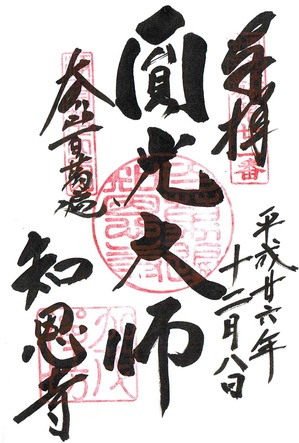 奉拝
平成廿六年
十二月八日
圓光大師
大本山百萬遍
知恩寺